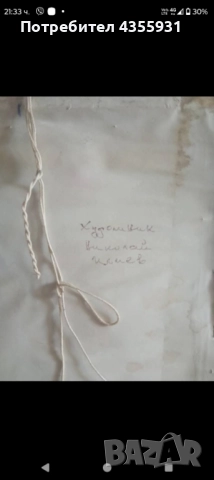 21:33 ч
4G
30%
Потребител 4355931
Художник
Николай
Илиев
BAZAR
bg